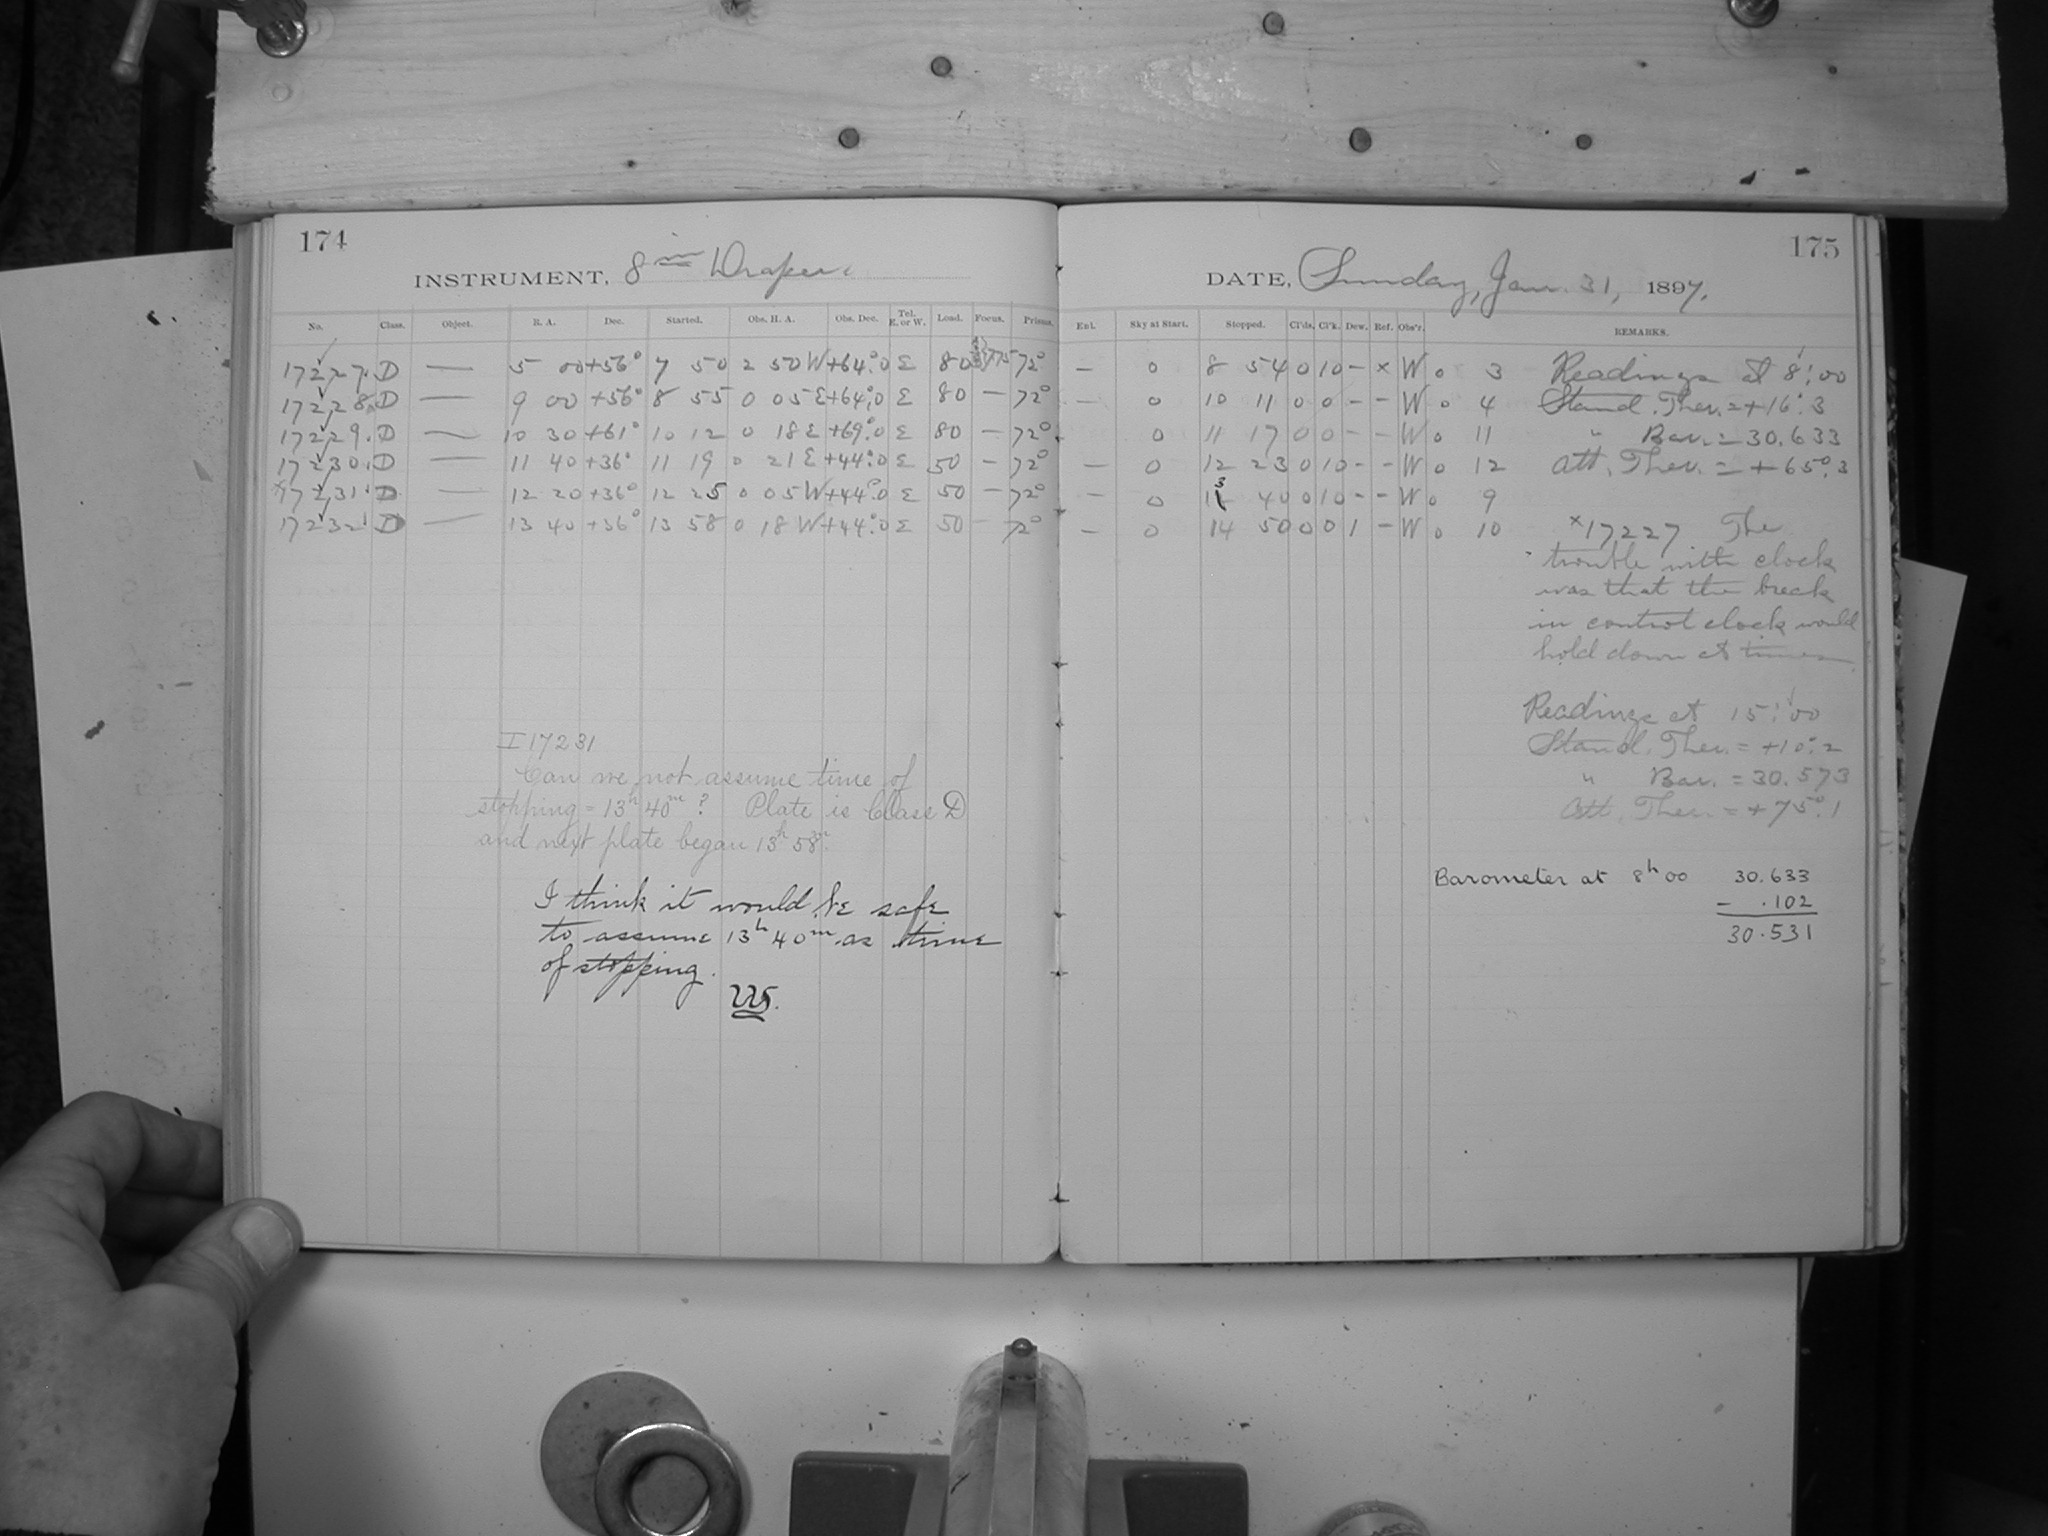 174
INSTRUMENT, 8 in Draper.
No. Class. Object. R. A. Dec. Started. Obs. H. A. Obs. Dec. Tel. E. or W. Load. Focus. Prisms.
17227. D — 5 00 +56° 7 50 2 50 W +64°.0 E 80 72°
17228. D — 9 00 +56° 8 55 0 05 E +64°.0 E 80 — 72°
17229. D — 10 30 +61° 10 12 0 18 E +69°.0 E 80 — 72°
17230. D — 11 40 +36° 11 19 0 21 E +44°.0 E 50 — 72°
17231. D — 12 20 +36° 12 25 0 05 W +44°.0 E 50 — 72°
17232 D — 13 40 +36° 13 58 0 18 W +44°.0 E 50 — 72°
I 17231
Can we not assume time of
stopping = 13h 40m? Plate is Class D
and next plate began 13h 58m.
I think it would be safe
to assume 13h 40m as time
of stopping.
175
DATE, Sunday, Jan. 31, 1897.
Ent. Sky at Start. Stopped. Cl'ds. Cl'k. Dew. Ref. Obs'r. REMARKS.
— 0 8 54 0 10 – × W 0 3 Readings at 8:00
— 0 10 11 0 0 – – W 0 4 Stand. Ther. = +16°.3
0 11 17 0 0 – – W 0 11 " Bar. = 30.633
— 0 12 23 0 10 – – W 0 12 Att. Ther. = +65°.3
— 0 13 40 0 10 – – W 0 9
— 0 14 50 0 0 1 – W 0 10 ×17227 The
trouble with clock
was that the break
in control clock would
hold down at times
Readings at 15:00
Stand. Ther. = +10°.2
" Bar. = 30.573
Att. Ther. = +75°.1
Barometer at 8h 00 30.633
– .102
30.531